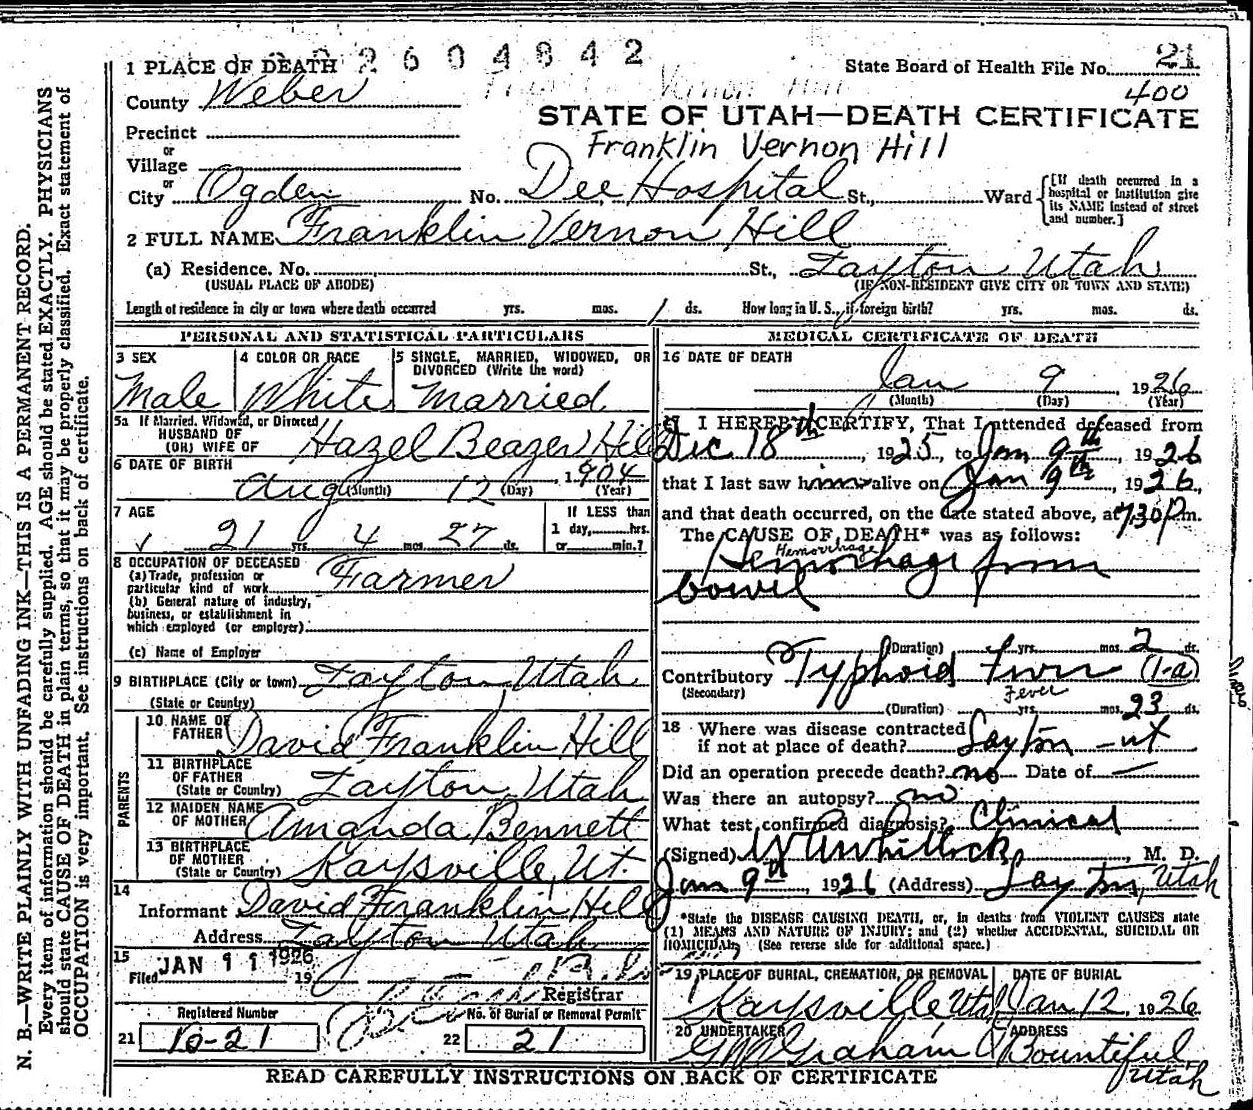 2604842
1 PLACE OF DEATH
State Board of Health File No. 21
400
County Weber
STATE OF UTAH—DEATH CERTIFICATE
Precinct
or
Village
Franklin Vernon Hill
or
City Ogden No. Dee Hospital St., Ward [If death occurred in a hospital or institution give its NAME instead of street and number.]
2 FULL NAME Franklin Vernon Hill
(a) Residence. No. St., Layton Utah
(USUAL PLACE OF ABODE) (IF NON-RESIDENT GIVE CITY OR TOWN AND STATE)
Length of residence in city or town where death occurred yrs. mos. 1 ds. How long in U. S., if foreign birth? yrs. mos. ds.
PERSONAL AND STATISTICAL PARTICULARS
3 SEX
Male
4 COLOR OR RACE
White
5 SINGLE, MARRIED, WIDOWED, OR
DIVORCED (Write the word)
Married
5a If Married, Widowed, or Divorced
HUSBAND OF
(OR) WIFE OF Hazel Beazer Hill
6 DATE OF BIRTH
Aug (Month) 12 (Day) 1904 (Year)
7 AGE
21 yrs. 4 mos. 27 ds.
If LESS than
1 day, hrs.
or min.?
8 OCCUPATION OF DECEASED
(a) Trade, profession or
particular kind of work Farmer
(b) General nature of industry,
business, or establishment in
which employed (or employer)
(c) Name of Employer
9 BIRTHPLACE (City or town) Layton, Utah
(State or Country)
PARENTS
10 NAME OF
FATHER David Franklin Hill
11 BIRTHPLACE
OF FATHER
(State or Country) Layton, Utah
12 MAIDEN NAME
OF MOTHER Amanda Bennett
13 BIRTHPLACE
OF MOTHER
(State or Country) Kaysville, Ut.
14
Informant David Franklin Hill
Address Layton Utah
15
Filed JAN 11 1926 19
Registrar
Registered Number
21 10-21
No. of Burial or Removal Permit
22 21
MEDICAL CERTIFICATE OF DEATH
16 DATE OF DEATH
Jan 9 1926
(Month) (Day) (Year)
I HEREBY CERTIFY, That I attended deceased from
Dec 18th, 1925, to Jan 9th 1926
that I last saw him alive on Jan 9th, 1926,
and that death occurred, on the date stated above, at 730 P m.
The CAUSE OF DEATH* was as follows:
Hemorrhage
Hemorrhage from
bowel
(Duration) yrs. mos. 2 ds.
Contributory Typhoid Fever (1-a)
(Secondary) Fever
(Duration) yrs. mos. 23 ds.
18 Where was disease contracted
if not at place of death? Layton - ut
Did an operation precede death? no Date of —
Was there an autopsy? no
What test confirmed diagnosis? Clinical
(Signed) Whitlock, M. D.
Jan 9th, 1926 (Address) Layton, Utah
*State the DISEASE CAUSING DEATH, or, in deaths from VIOLENT CAUSES state
(1) MEANS AND NATURE OF INJURY; and (2) whether ACCIDENTAL, SUICIDAL OR
HOMICIDAL. (See reverse side for additional space.)
19 PLACE OF BURIAL, CREMATION, OR REMOVAL
Kaysville Utah
DATE OF BURIAL
Jan 12, 1926
20 UNDERTAKER
Graham
ADDRESS
Bountiful
Utah
READ CAREFULLY INSTRUCTIONS ON BACK OF CERTIFICATE
N. B.—WRITE PLAINLY WITH UNFADING INK—THIS IS A PERMANENT RECORD.
Every item of information should be carefully supplied. AGE should be stated EXACTLY. PHYSICIANS
should state CAUSE OF DEATH in plain terms, so that it may be properly classified. Exact statement of
OCCUPATION is very important. See instructions on back of certificate.